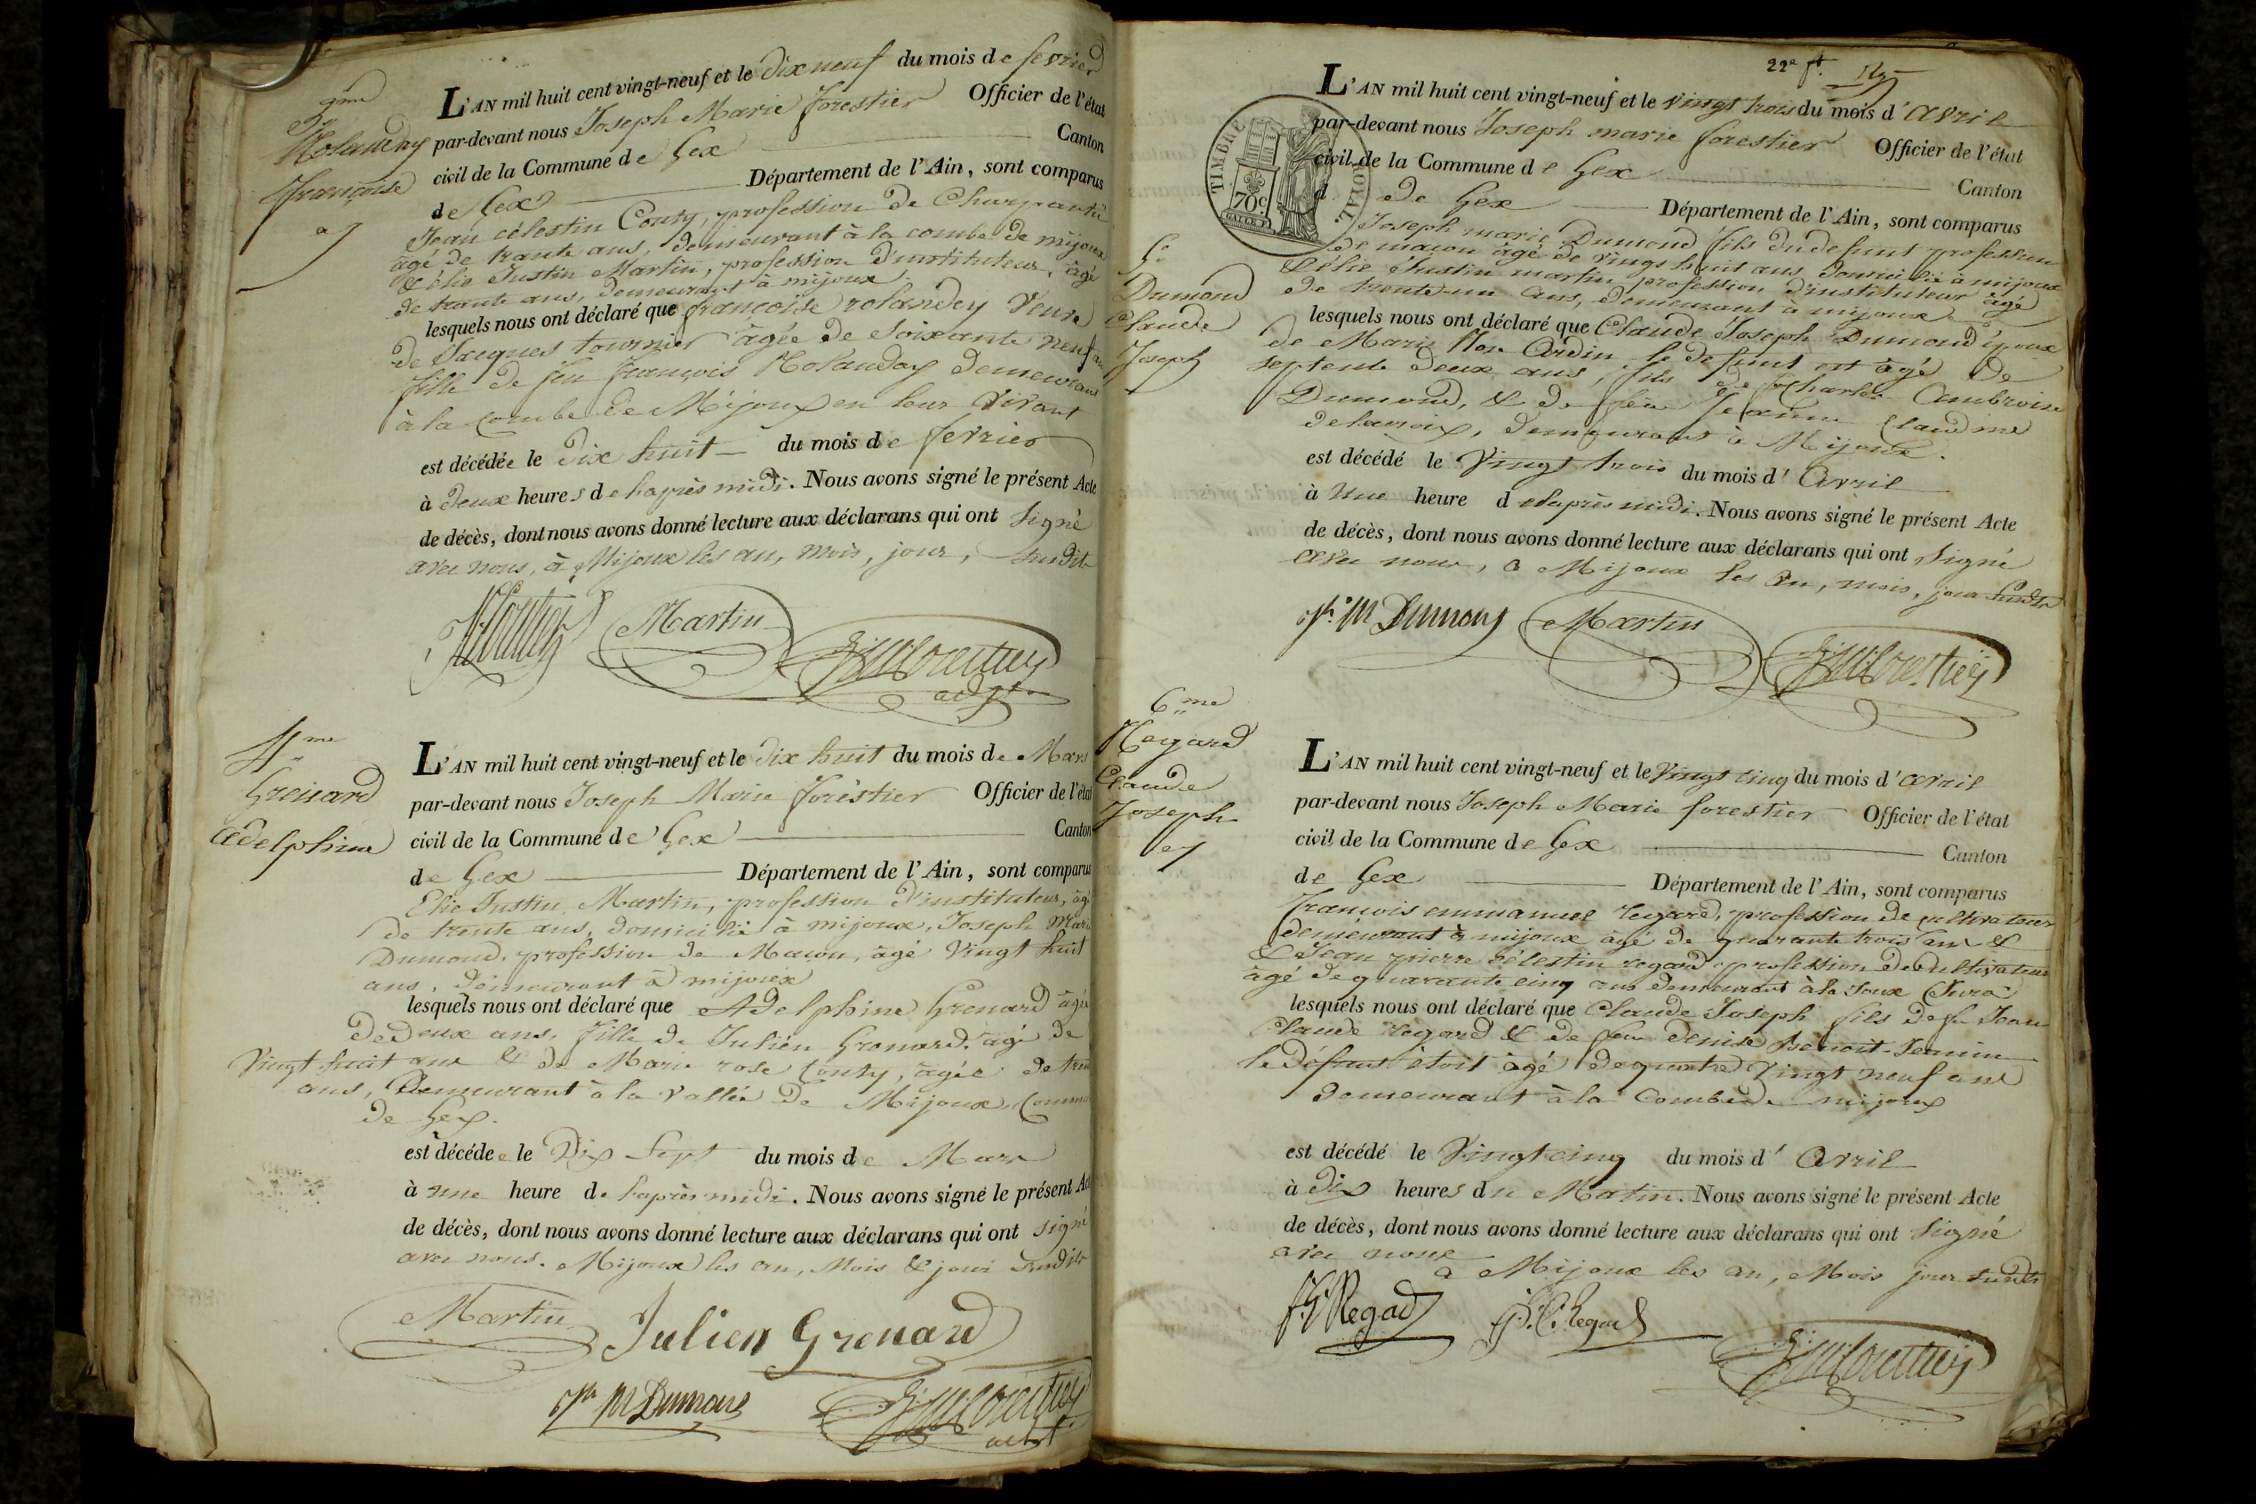 3me
Rolandey
françoise
L'AN mil huit cent vingt-neuf et le dix neuf du mois de fevrier
par-devant nous Joseph Marie forestier Officier de l'état
civil de la Commune de Gex Canton
de Gex Département de l'Ain, sont comparus
Jean célestin Conty, profession de Charpantié
âgé de trante ans, demeurant à la combe de mijoux
& élie Justin Martin, profession d'instituteur, âgé
de trante ans, demeurant à mijoux
lesquels nous ont déclaré que françoise rolandey Veuve
de Jacques tournier âgée de Soixante neuf ans
fille de feu françois Rolanday demeurant
à la combe de Mijoux en leur Vivant
est décédée le Dix huit du mois de fevrier
à deux heures de l'après midi. Nous avons signé le présent Acte
de décès, dont nous avons donné lecture aux déclarans qui ont Signé
avec nous, à Mijoux les an, mois, jour, Susdits
Martin
4me
Grenard
Adelphine
L'AN mil huit cent vingt-neuf et le dix huit du mois de Mars
par-devant nous Joseph Marie forestier Officier de l'état
civil de la Commune de Gex Canton
de Gex Département de l'Ain, sont comparus
Elie Justin Martin, profession d'instituteur, âgé
de trente ans, domicilié à mijoux, Joseph Marie
Dumond, profession de Macon, âgé Vingt huit
ans, demeurant à mijoux
lesquels nous ont déclaré que Adelphine Grenard âgée
de Deux ans, fille de Julien Grenard, âgé de
Vingt huit ans & de Marie rose Conty, âgée de trente
ans, Demeurant à la Vallée de Mijoux, Commune
de Gex.
est décédée le Dix Sept du mois de Mars
à une heure de l'après midi. Nous avons signé le présent Acte
de décès, dont nous avons donné lecture aux déclarans qui ont signé
avec nous. Mijoux les an, Mois & jour Susdits
Martin
Julien Grenard
Jh M Dumond
22e ft.
TIMBRE ROYAL
70c.
5e
Dumond
Claude
Joseph
L'AN mil huit cent vingt-neuf et le vingt trois du mois d'avril
par-devant nous Joseph marie forestier Officier de l'état
civil de la Commune de Gex Canton
d de Gex Département de l'Ain, sont comparus
Joseph marie Dumond fils du defunt profession
de maçon âgé de vingt huit ans, domicilié à mijoux
& élie Justin martin profession d'instituteur âgé
de trente-un ans, demeurant à mijoux
lesquels nous ont déclaré que Claude Joseph Dumond époux
de Marie Cardin le defunt est âgé de
septente deux ans, fils de Charles Ambroise
Dumond, & de feue Jeanne Claudine
delacroix, demeurant à Mijoux.
est décédé le Vingt trois du mois d'Avril
à Une heure de l'après midi. Nous avons signé le présent Acte
de décès, dont nous avons donné lecture aux déclarans qui ont Signé
avec nous, a Mijoux les an, mois, jour Susdits
Jh M Dumond
Martin
6me
Regard
Claude
Joseph
L'AN mil huit cent vingt-neuf et le Vingt cinq du mois d'avril
par-devant nous Joseph Marie forestier Officier de l'état
civil de la Commune de Gex Canton
de Gex Département de l'Ain, sont comparus
françois emmanuel regard, profession de cultivateur
demeurant à mijoux âgé de quarante trois ans &
& Jean pierre célestin regard, profession de Cultivateur
âgé de quarante cinq ans demeurant à la Joux (Jura)
lesquels nous ont déclaré que Claude Joseph fils de f Jean
Claude regard & de feue Denise benoit-Jeannin
le défunt étoit âgé de quatre Vingt neuf ans
demeurant à la Combe de mijoux
est décédé le Vingt cinq du mois d'Avril
à Dix heures du Matin. Nous avons signé le présent Acte
de décès, dont nous avons donné lecture aux déclarans qui ont Signé
avec nous
a Mijoux les an, Mois jour susdits
Regad
J.P.C. Regard